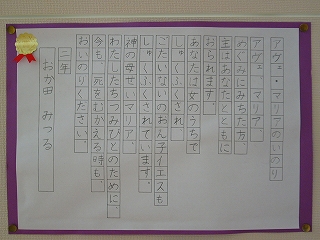 アヴェ・マリアのいのり
アヴェ、マリア、
めぐみにみちたかた、
主はあなたとともに
おられます。
あなたは女のうちで
しゅくふくされ、
ごたいないのおん子イエスも
しゅくふくされています。
神の母せいマリア、
わたしたちつみびとのために、
今も、死をむかえる時も、
おいのりください。
二年
おか田 みつる